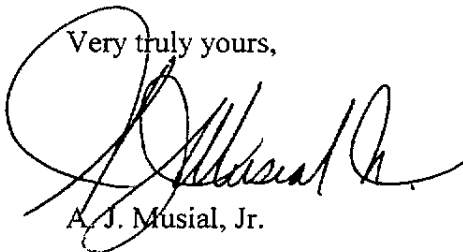 Very truly yours,
A J Musial Jr.
A. J. Musial, Jr.